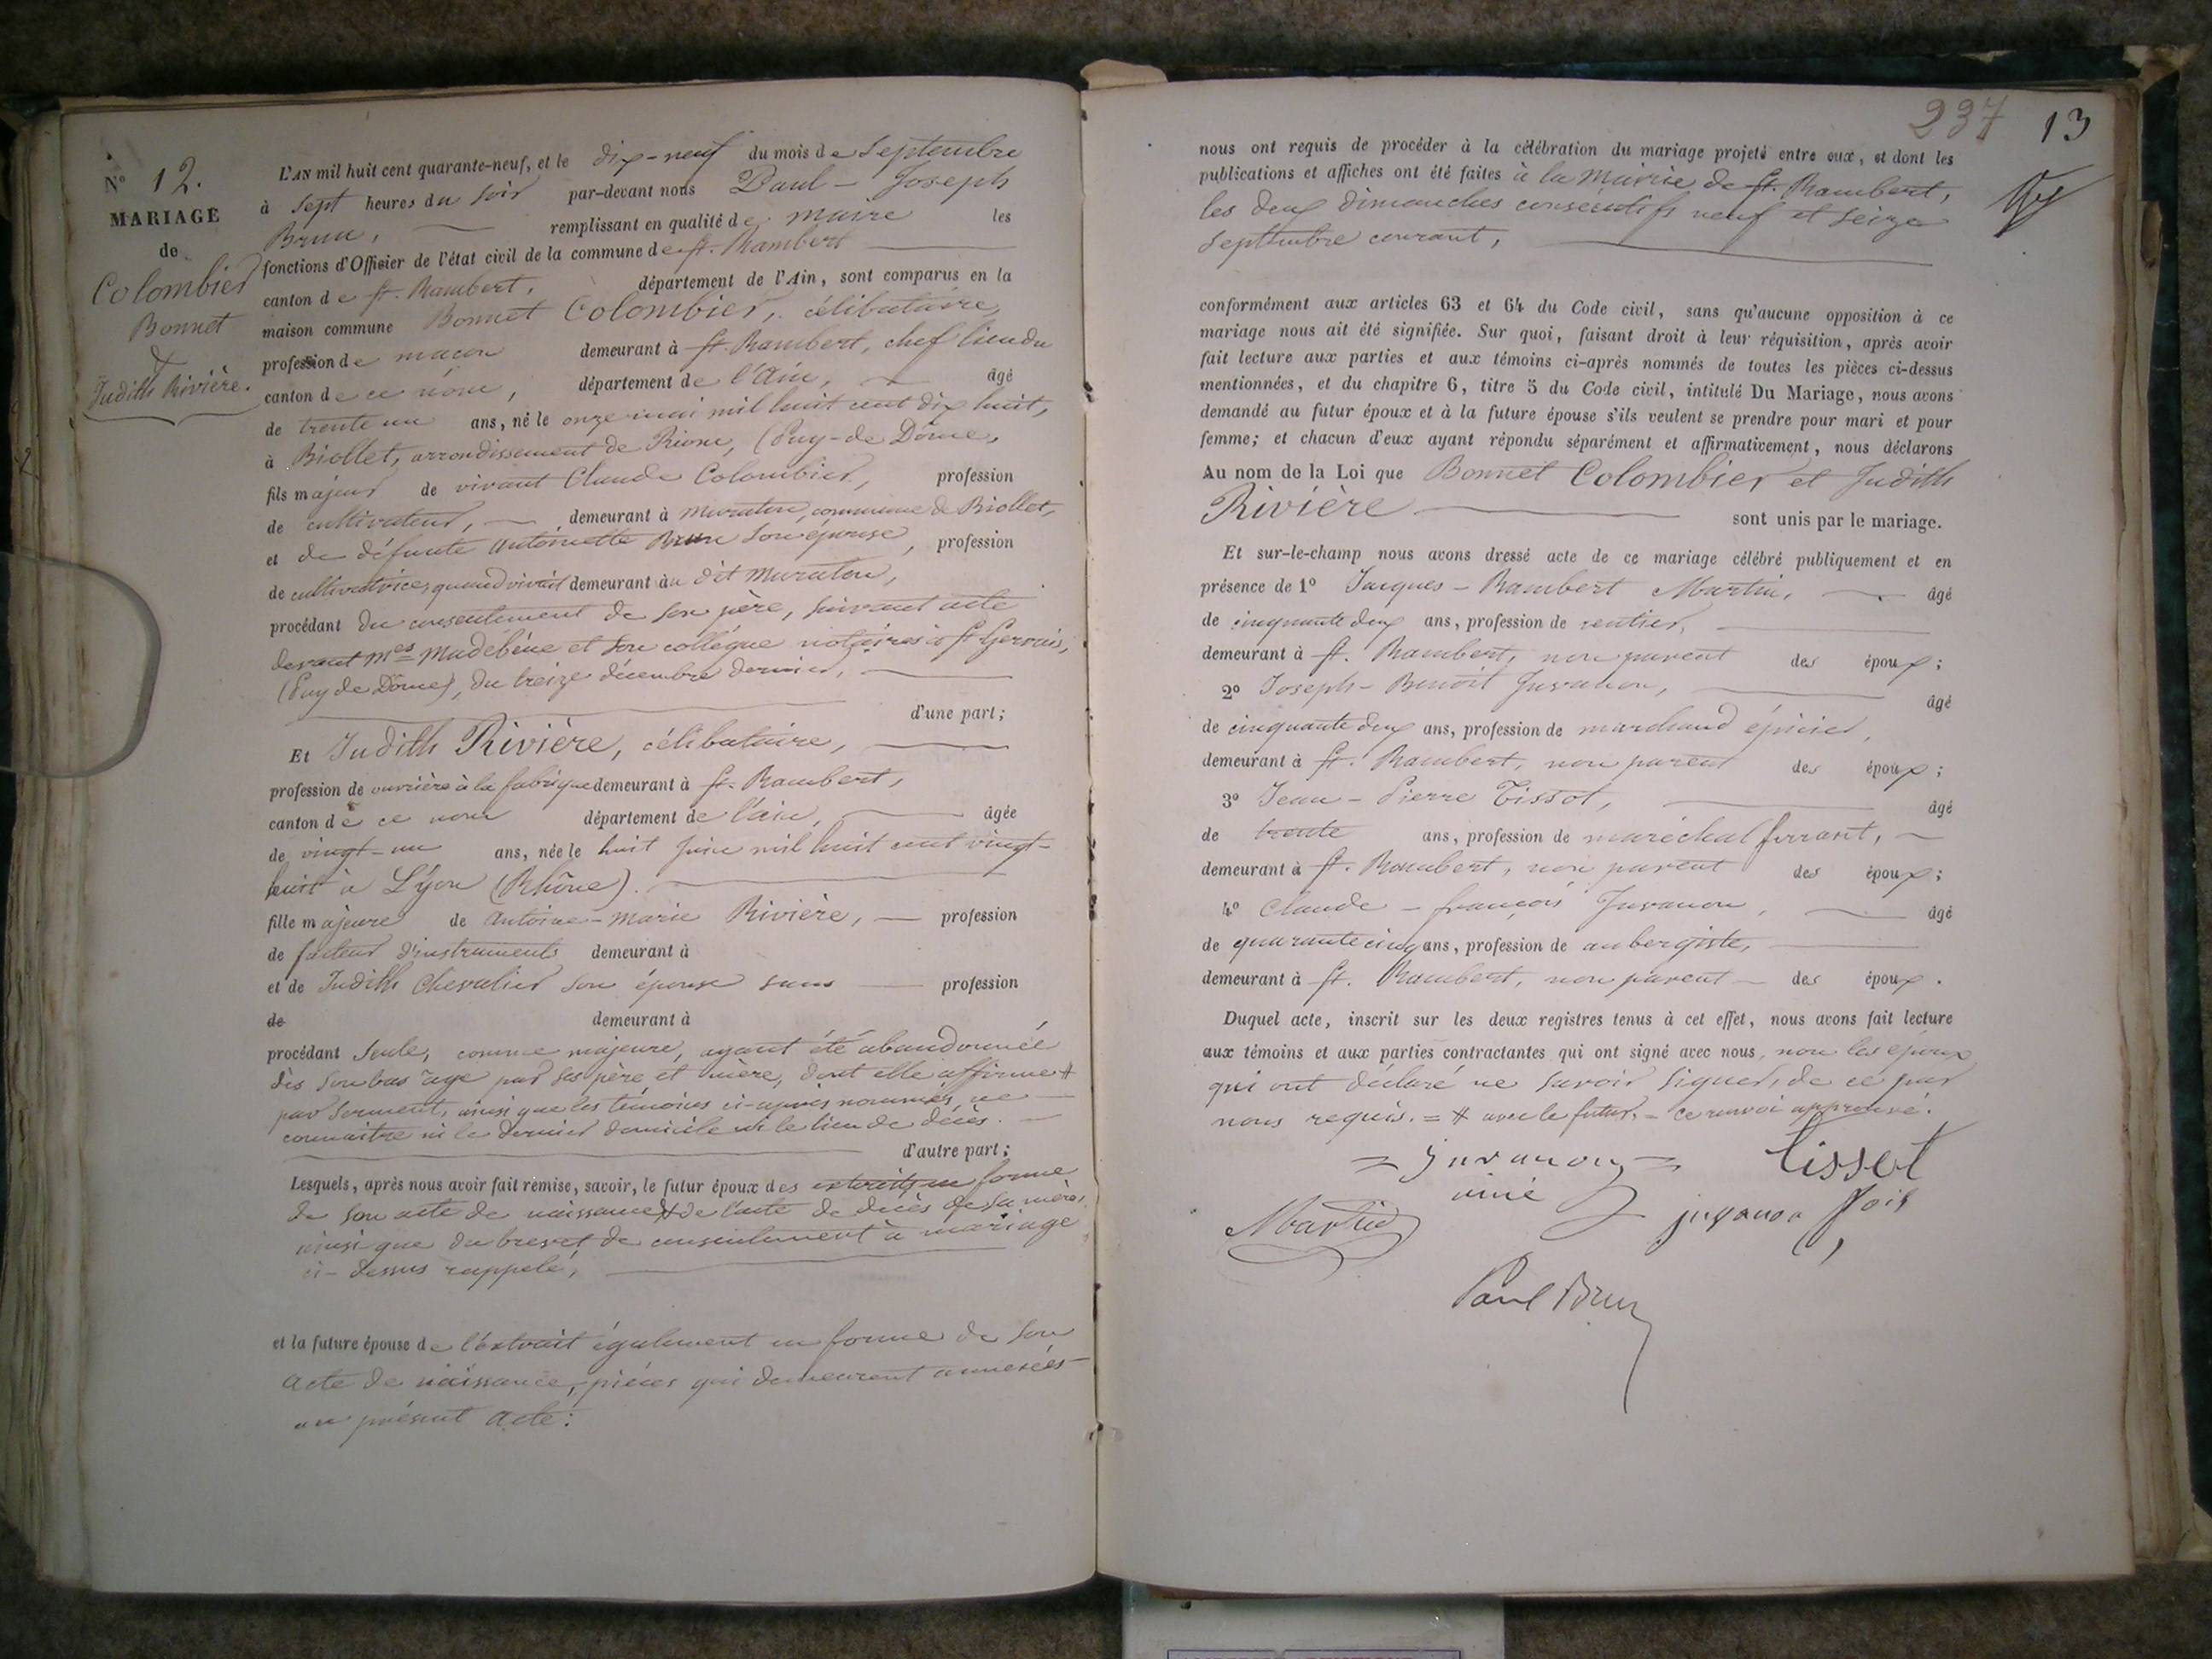 N° 12.
MARIAGE
de
Colombier
Bonnet
&
Judith Rivière.
L'AN mil huit cent quarante-neuf, et le dix-neuf du mois de Septembre
à Sept heures du soir par-devant nous Paul-Joseph
Brun, remplissant en qualité de maire les
fonctions d'Officier de l'état civil de la commune de St. Rambert
canton de St. Rambert, département de l'Ain, sont comparus en la
maison commune Bonnet Colombier, célibataire,
profession de maçon demeurant à St. Rambert, chef lieu du
canton de ce nom, département de l'Ain, âgé
de trente un ans, né le onze mai mil huit cent dix huit,
à Biollet, arrondissement de Riom, (Puy-de Dôme,
fils majeur de vivant Claude Colombier, profession
de cultivateur, demeurant à Muratou, commune de Biollet,
et de défunte Antoinette Brun son épouse, profession
de cultivatrice, quand vivait demeurant au dit Muratou,
procédant du consentement de son père, suivant acte
devant Mes Madebène et son collègue notaires à St Gervais,
(Puy de Dôme), du treize décembre dernier,
d'une part;
Et Judith Rivière, célibataire,
profession de ouvrière à la fabrique demeurant à St. Rambert,
canton de ce nom département de l'ain, âgée
de vingt-un ans, née le huit Juin mil huit cent vingt-
huit à Lyon (Rhône).
fille majeure de Antoine-Marie Rivière, profession
de facteur d'instruments demeurant à
et de Judith Chevalier son épouse sans profession
de demeurant à
procédant Seule, comme majeure, ayant été abandonnée
dès son bas âge par ses père et mère, dont elle affirme #
par serment, ainsi que les témoins ci-après nommés, ne
connaître ni le dernier domicile ni le lieu de décès.
d'autre part;
Lesquels, après nous avoir fait remise, savoir, le futur époux des extraits en forme
de son acte de naissance & de l'acte de décès de sa mère,
ainsi que du brevet de consentement à mariage
ci-dessus rappelé,
et la future épouse de l'extrait également en forme de son
acte de naissance, pièces qui demeurent annexées
au présent acte:
237 13
nous ont requis de procéder à la célébration du mariage projeté entre eux, et dont les
publications et affiches ont été faites à la Mairie de St. Rambert,
les deux dimanches consécutifs neuf et seize
septembre courant,
conformément aux articles 63 et 64 du Code civil, sans qu'aucune opposition à ce
mariage nous ait été signifiée. Sur quoi, faisant droit à leur réquisition, après avoir
fait lecture aux parties et aux témoins ci-après nommés de toutes les pièces ci-dessus
mentionnées, et du chapitre 6, titre 5 du Code civil, intitulé Du Mariage, nous avons
demandé au futur époux et à la future épouse s'ils veulent se prendre pour mari et pour
femme; et chacun d'eux ayant répondu séparément et affirmativement, nous déclarons
Au nom de la Loi que Bonnet Colombier et Judith
Rivière sont unis par le mariage.
Et sur-le-champ nous avons dressé acte de ce mariage célébré publiquement et en
présence de 1° Jacques-Rambert Martin, âgé
de cinquante deux ans, profession de rentier,
demeurant à St. Rambert, non parent des époux;
2° Joseph-Benoit Juvanon, âgé
de cinquante deux ans, profession de marchand épicier,
demeurant à St. Rambert, non parent des époux;
3° Jean-Pierre Tissot, âgé
de trente ans, profession de maréchal ferrant,
demeurant à St. Rambert, non parent des époux;
4° Claude-françois Juvanon, âgé
de quarante cinq ans, profession de aubergiste,
demeurant à St. Rambert, non parent des époux.
Duquel acte, inscrit sur les deux registres tenus à cet effet, nous avons fait lecture
aux témoins et aux parties contractantes qui ont signé avec nous, non les époux
qui ont déclaré ne savoir signer, de ce par
nous requis. = # avec le futur. = ce renvoi approuvé.
= Juvanon = tissot
ainé
Martin juvanon fois
Paul Brun